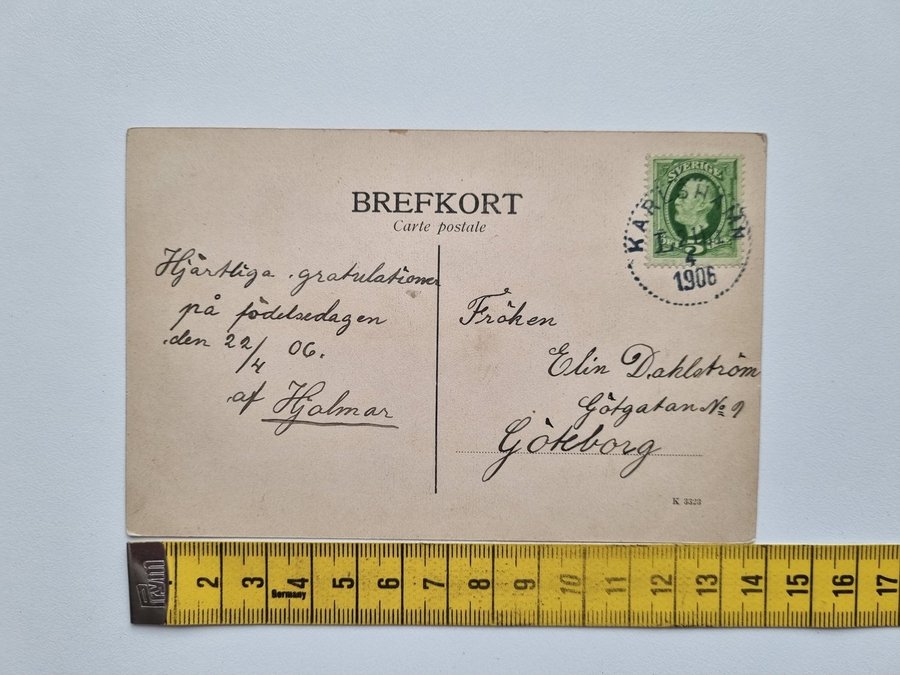 BREFKORT
Carte postale
SVERIGE
KARLSHAMN
1906
Hjärtliga gratulationer
på födelsedagen
den 22/4 06.
af Hjalmar
Fröken
Elin Dahlström
Götgatan № 9
Göteborg
K 3323
2 3 4 5 6 7 8 9 10 11 12 13 14 15 16 17
Germany